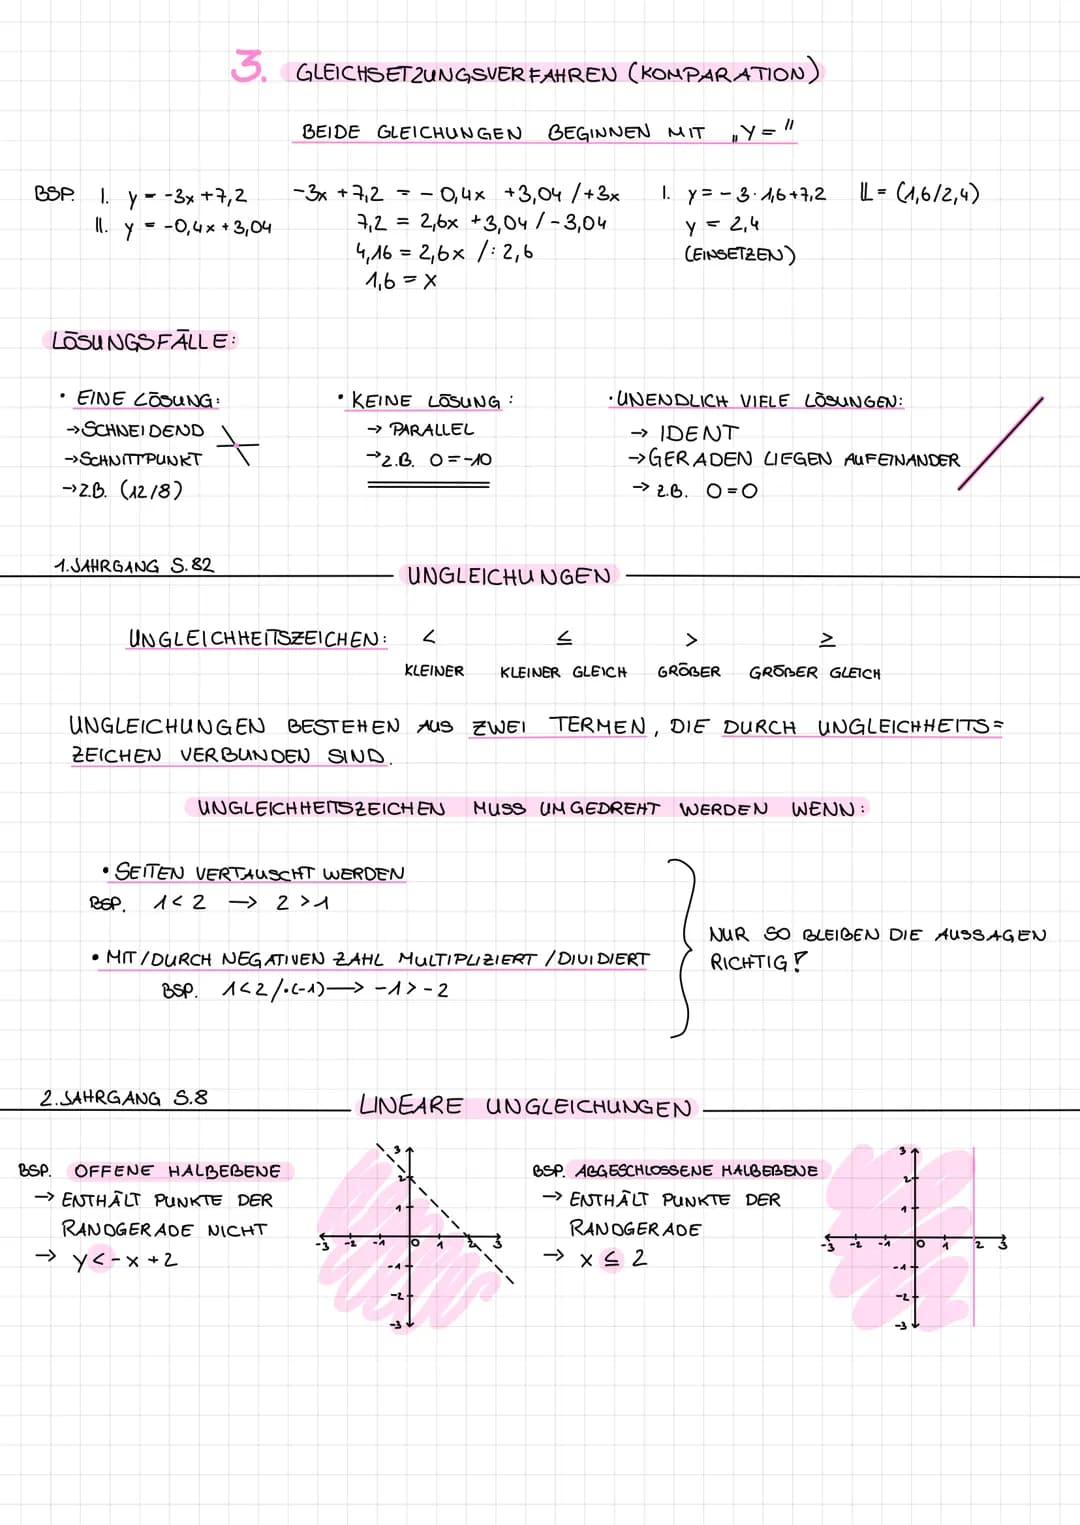 3. GLEICHSETZUNGSVERFAHREN (KOMPARATION)
BEIDE GLEICHUNGEN BEGINNEN MIT „Y="
BSP. I. y = -3x +7,2
II. y = -0,4x + 3,04
-3x +7,2 = - 0,4x +3,04 /+3x
7,2 = 2,6x +3,04 /-3,04
4,16 = 2,6x /: 2,6
1,6 = x
I. y = - 3 · 1,6+7,2
y = 2,4
(EINSETZEN)
𝕃 = (1,6/2,4)
LÖSUNGSFÄLLE:
• EINE LÖSUNG:
→SCHNEIDEND
→SCHNITTPUNKT
→Z.B. (12/8)
• KEINE LÖSUNG:
→ PARALLEL
→Z.B. 0=-10
• UNENDLICH VIELE LÖSUNGEN:
→ IDENT
→GERADEN LIEGEN AUFEINANDER
→ Z.B. 0=0
1.JAHRGANG S.82
UNGLEICHUNGEN
UNGLEICHHEITSZEICHEN: < ≤ > ≥
KLEINER KLEINER GLEICH GRÖßER GRÖßER GLEICH
UNGLEICHUNGEN BESTEHEN AUS ZWEI TERMEN, DIE DURCH UNGLEICHHEITS=
ZEICHEN VERBUNDEN SIND.
UNGLEICHHEITSZEICHEN MUSS UMGEDREHT WERDEN WENN:
• SEITEN VERTAUSCHT WERDEN
BSP. 1<2 → 2>1
• MIT/DURCH NEGATIVEN ZAHL MULTIPLIZIERT/DIVIDIERT
BSP. 1<2 /·(-1) → -1>-2
NUR SO BLEIBEN DIE AUSSAGEN
RICHTIG!
2.JAHRGANG S.8
LINEARE UNGLEICHUNGEN
BSP. OFFENE HALBEBENE
→ ENTHÄLT PUNKTE DER
RANDGERADE NICHT
→ y<-x+2
3
2
1
-3 -2 -1 0 1 2 3
-1
-2
-3
BSP. ABGESCHLOSSENE HALBEBENE
→ ENTHÄLT PUNKTE DER
RANDGERADE
→ x ≤ 2
3
2
1
-3 -2 -1 0 1 2 3
-1
-2
-3